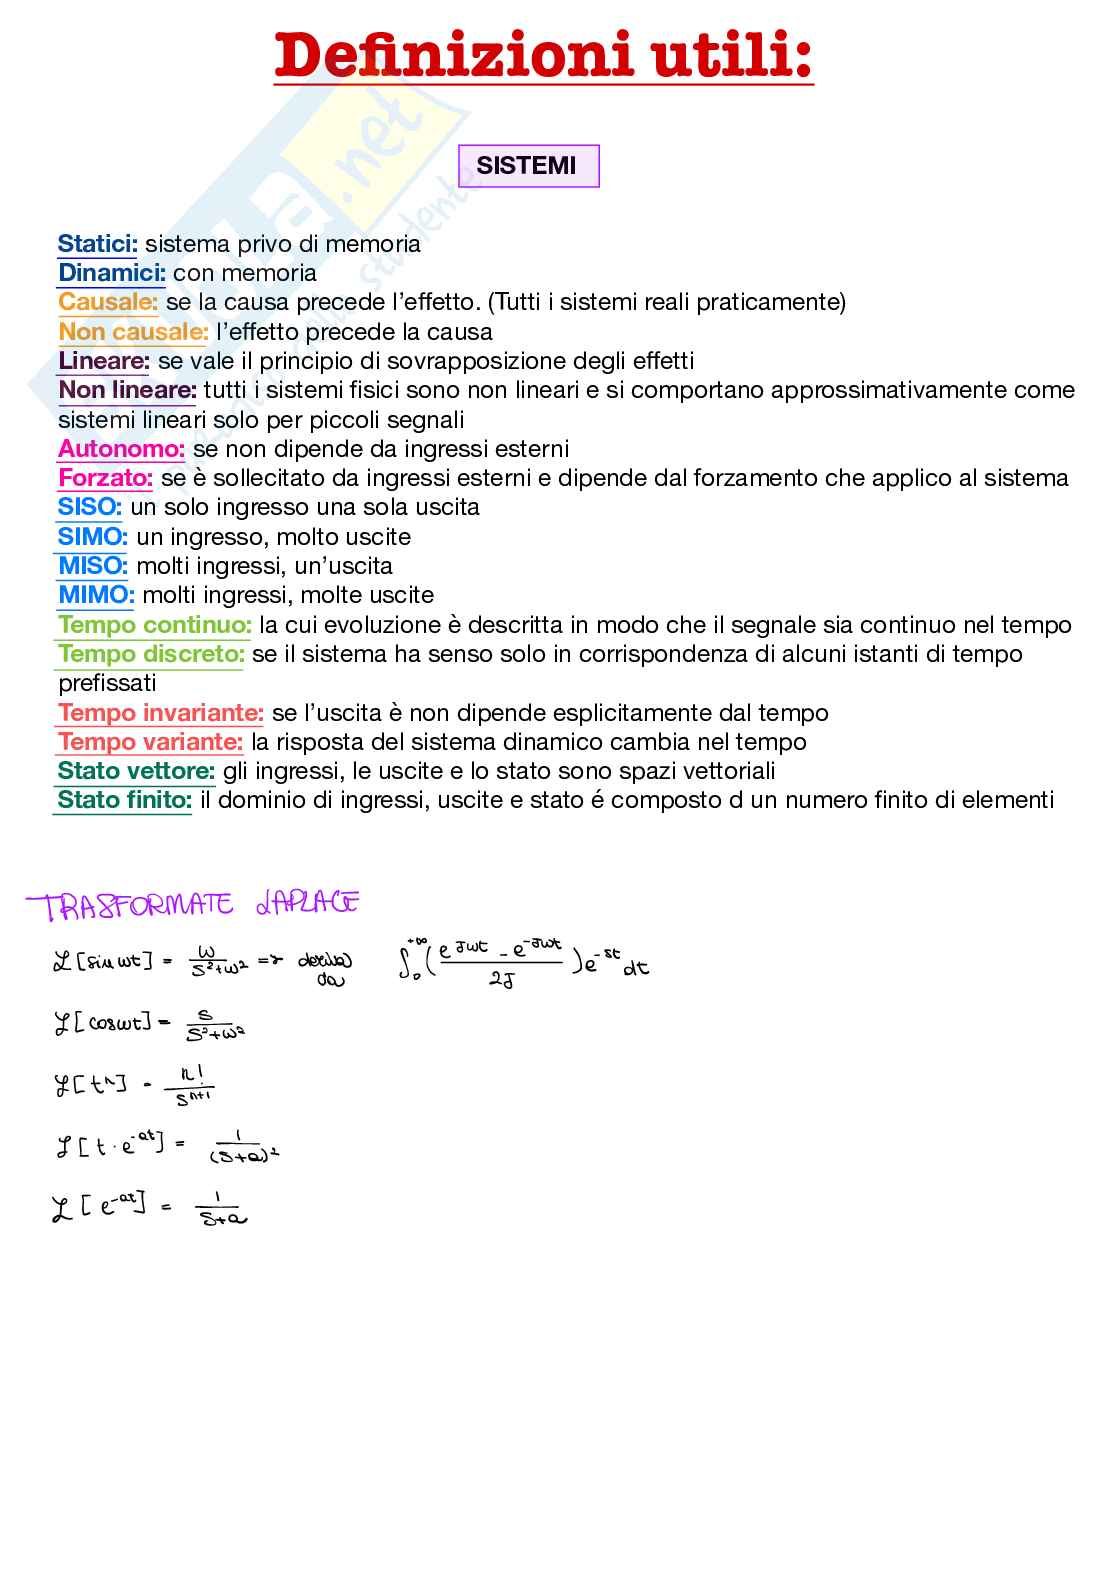 Definizioni utili:
SISTEMI
Statici: sistema privo di memoria
Dinamici: con memoria
Causale: se la causa precede l'effetto. (Tutti i sistemi reali praticamente)
Non causale: l'effetto precede la causa
Lineare: se vale il principio di sovrapposizione degli effetti
Non lineare: tutti i sistemi fisici sono non lineari e si comportano approssimativamente come
sistemi lineari solo per piccoli segnali
Autonomo: se non dipende da ingressi esterni
Forzato: se è sollecitato da ingressi esterni e dipende dal forzamento che applico al sistema
SISO: un solo ingresso una sola uscita
SIMO: un ingresso, molto uscite
MISO: molti ingressi, un'uscita
MIMO: molti ingressi, molte uscite
Tempo continuo: la cui evoluzione è descritta in modo che il segnale sia continuo nel tempo
Tempo discreto: se il sistema ha senso solo in corrispondenza di alcuni istanti di tempo
prefissati
Tempo invariante: se l'uscita è non dipende esplicitamente dal tempo
Tempo variante: la risposta del sistema dinamico cambia nel tempo
Stato vettore: gli ingressi, le uscite e lo stato sono spazi vettoriali
Stato finito: il dominio di ingressi, uscite e stato é composto d un numero finito di elementi
TRASFORMATE LAPLACE
ℒ[sin ωt] = ω/(s²+ω²) => deriva da ∫₀^{+∞} ((e^{Jωt} - e^{-Jωt})/2J) e^{-st} dt
ℒ[cosωt] = s/(s²+ω²)
ℒ[tⁿ] = n!/s^{n+1}
ℒ[t·e^{-at}] = 1/(s+a)²
ℒ[e^{-at}] = 1/(s+a)